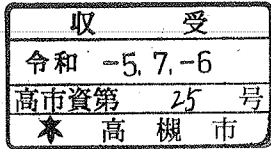 収受
令和 -5. 7. -6
高市資第 25 号
高槻市